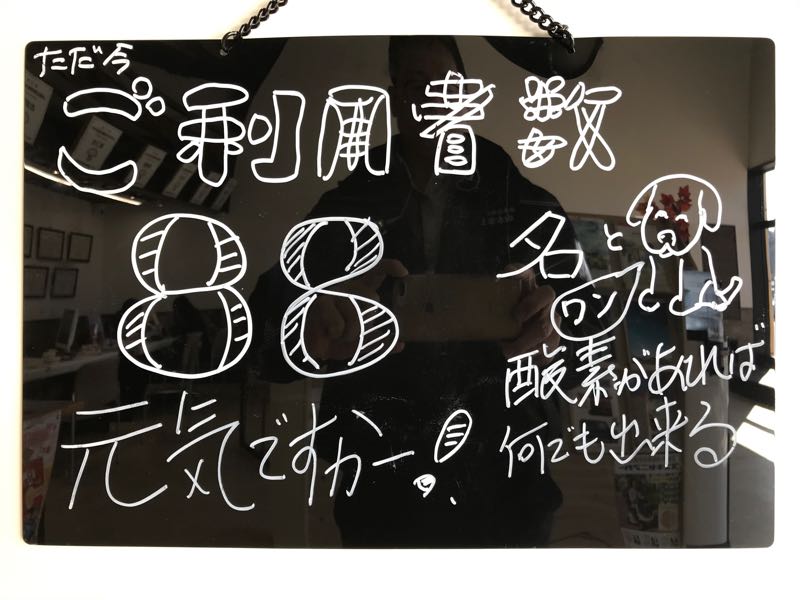 ただ今
ご利用者数
88名と
ワン
元気ですかー!
酸素があれば
何でも出来る